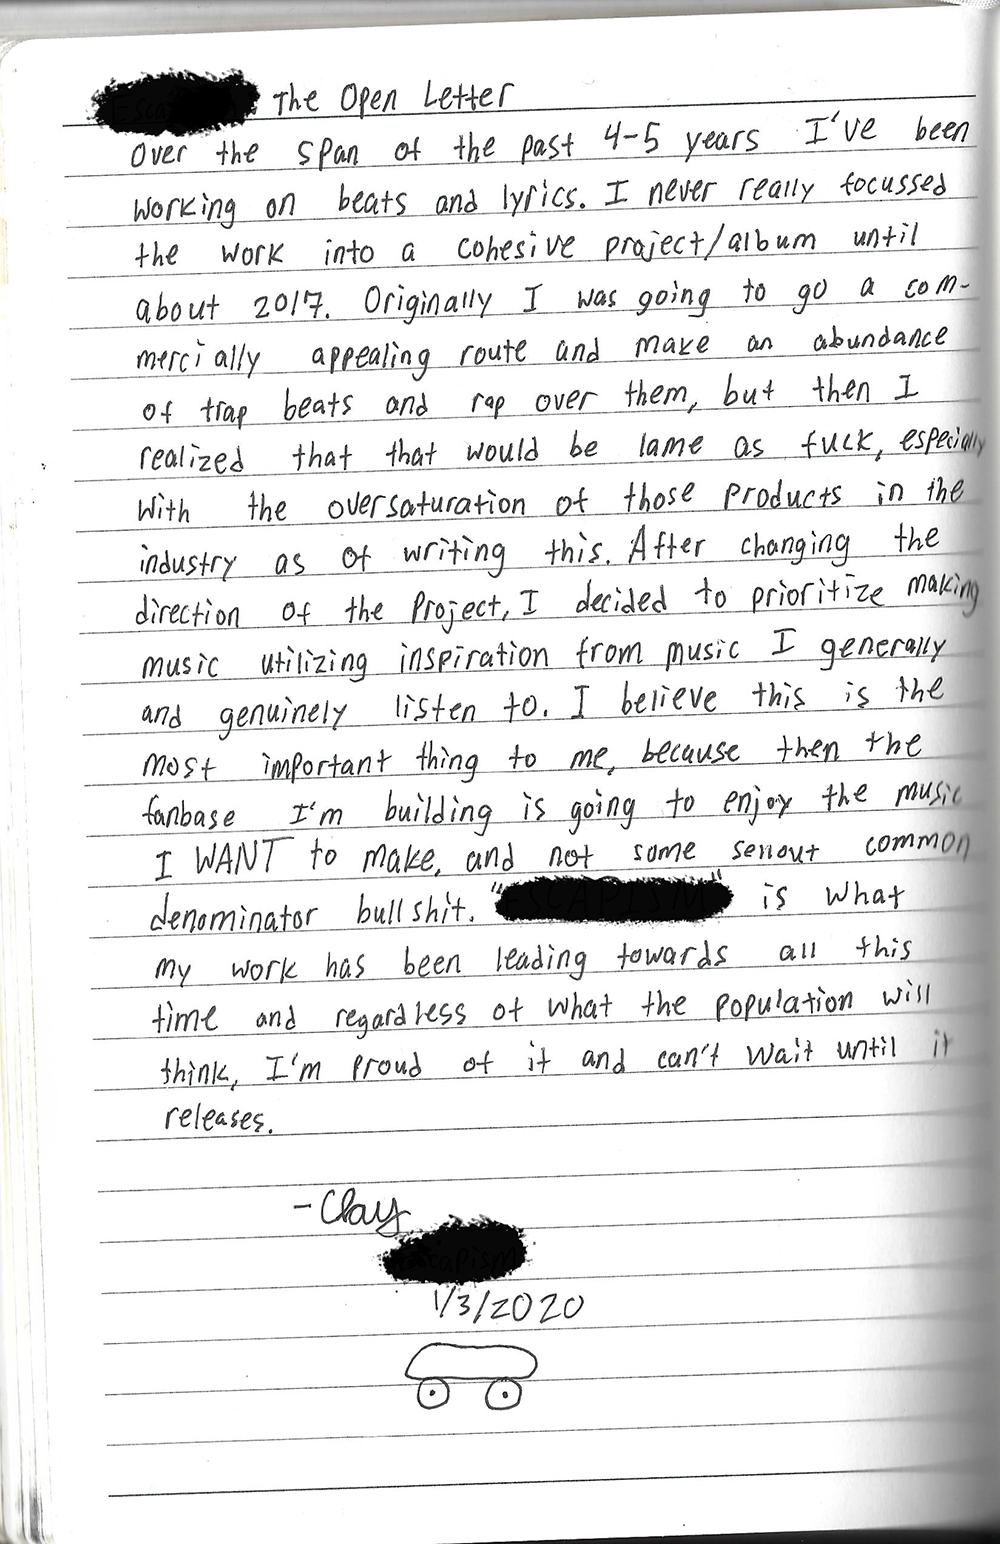 The Open Letter
Over the span of the past 4-5 years I've been
working on beats and lyrics. I never really focussed
the work into a cohesive project/album until
about 2017. Originally I was going to go a com-
mercially appealing route and make an abundance
of trap beats and rap over them, but then I
realized that that would be lame as fuck, especially
with the oversaturation of those products in the
industry as of writing this. After changing the
direction of the project, I decided to prioritize making
music utilizing inspiration from music I generally
and genuinely listen to. I believe this is the
most important thing to me, because then the
fanbase I'm building is going to enjoy the music
I WANT to make, and not some sellout common
denominator bullshit. "" is what
my work has been leading towards all this
time and regardless of what the population will
think, I'm proud of it and can't wait until it
releases.
-Clay
1/3/2020